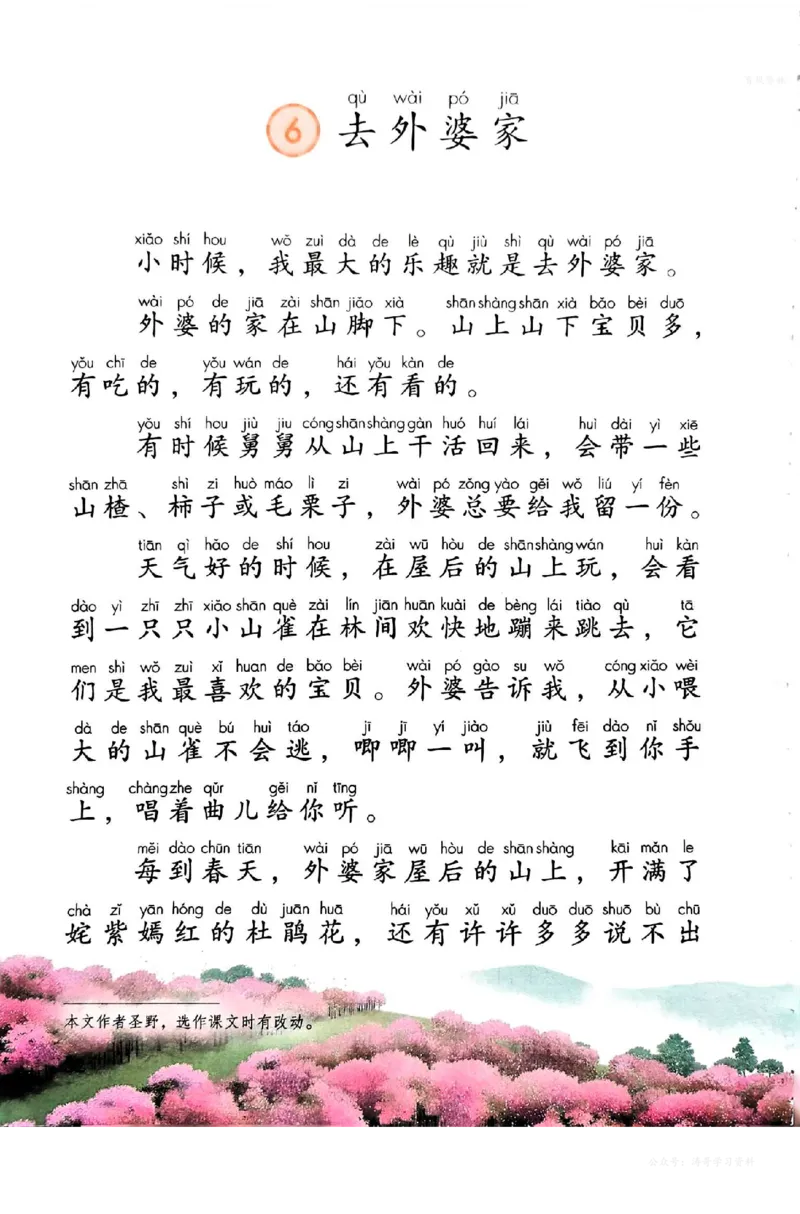 qù wài pó jiā
6 去外婆家
xiǎo shí hou wǒ zuì dà de lè qù jiù shì qù wài pó jiā
小时候，我最大的乐趣就是去外婆家。
wài pó de jiā zài shān jiǎo xià shān shàng shān xià bǎo bèi duō
外婆的家在山脚下。山上山下宝贝多，
yǒu chī de yǒu wán de hái yǒu kàn de
有吃的，有玩的，还有看的。
yǒu shí hou jiù jiu cóng shān shàng gàn huó huí lái huì dài yì xiē
有时候舅舅从山上干活回来，会带一些
shān zhā shì zi huò máo lì zi wài pó zǒng yào gěi wǒ liú yí fèn
山楂、柿子或毛栗子，外婆总要给我留一份。
tiān qì hǎo de shí hou zài wū hòu de shān shàng wán huì kàn
天气好的时候，在屋后的山上玩，会看
dào yì zhī zhī xiǎo shān què zài lín jiān huān kuài de bèng lái tiào qù tā
到一只只小山雀在林间欢快地蹦来跳去，它
men shì wǒ zuì xǐ huan de bǎo bèi wài pó gào su wǒ cóng xiǎo wèi
们是我最喜欢的宝贝。外婆告诉我，从小喂
dà de shān què bú huì táo jī jī yí jiào jiù fēi dào nǐ shǒu
大的山雀不会逃，唧唧一叫，就飞到你手
shàng chàng zhe qǔr gěi nǐ tīng
上，唱着曲儿给你听。
měi dào chūn tiān wài pó jiā wū hòu de shān shàng kāi mǎn le
每到春天，外婆家屋后的山上，开满了
chà zǐ yān hóng de dù juān huā hái yǒu xǔ xǔ duō duō shuō bù chū
姹紫嫣红的杜鹃花，还有许许多多说不出
本文作者圣野，选作课文时有改动。